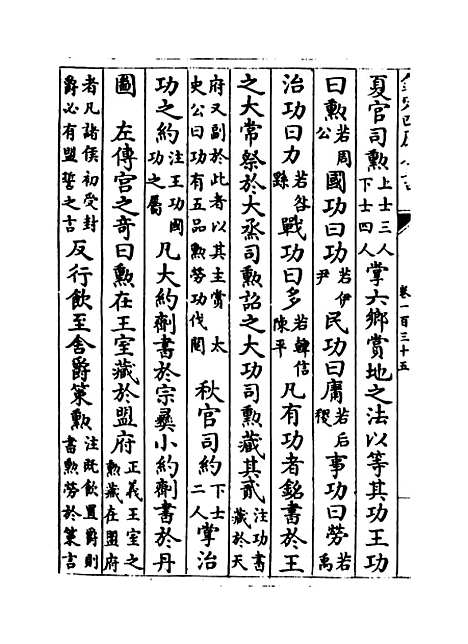 卷一百三十五
夏官司勲上士三人下士四人掌六鄉賞地之法以等其功王功
曰勲若周公國功曰功若伊尹民功曰庸若后稷事功曰勞若禹
治功曰力若咎繇戰功曰多若韓信陳平凡有功者銘書於王
之大常祭於大烝司勲詔之大功司勲藏其貳注功書藏於天
府又副於此者以其主賞 太史公曰功有五品勲勞功伐閱 秋官司約下士二人掌治
功之約注王功國功之屬凡大約劑書於宗彞小約劑書於丹
圖 左傳宫之奇曰勲在王室藏於盟府正義王室之勲藏在盟府
者凡諸侯初受封爵必有盟誓之言反行飲至舍爵策勲注既飲置爵則書勲勞於策言